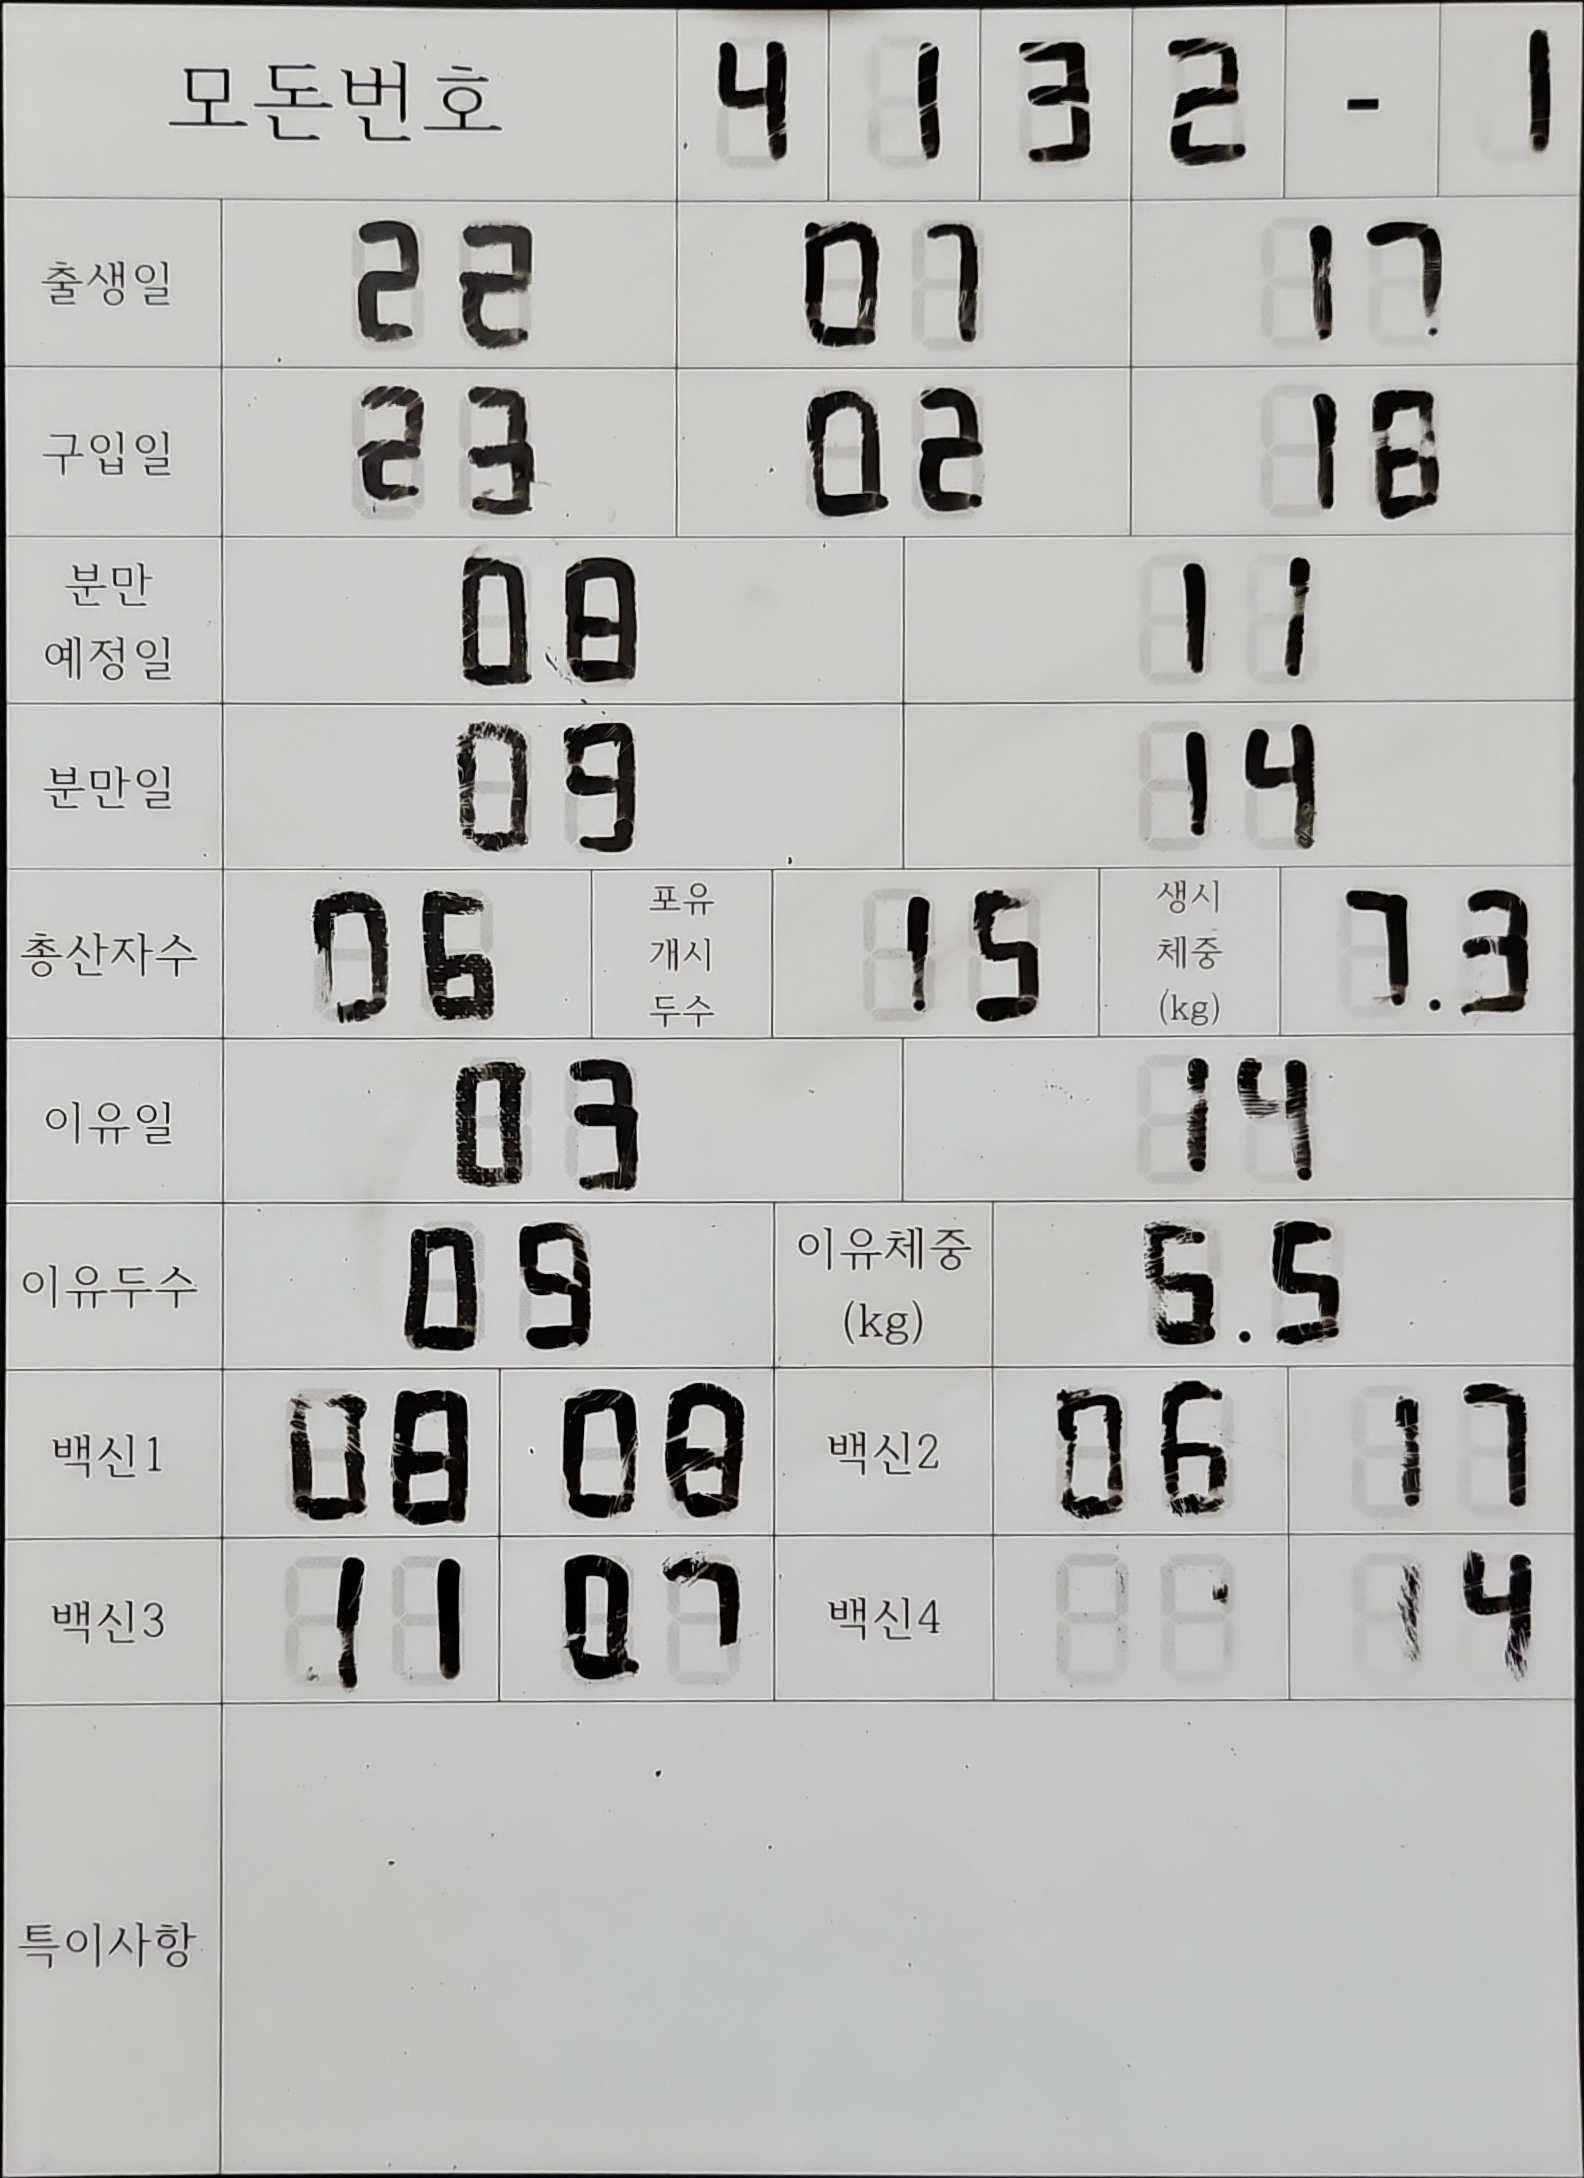 모돈번호 4 1 3 2 - 1
출생일 22 07 17
구입일 23 02 18
분만
예정일 08 11
분만일 09 14
총산자수 06 포유
개시
두수 15 생시
체중
(kg) 7.3
이유일 03 14
이유두수 09 이유체중
(kg) 5.5
백신1 08 08 백신2 06 17
백신3 11 07 백신4 14
특이사항